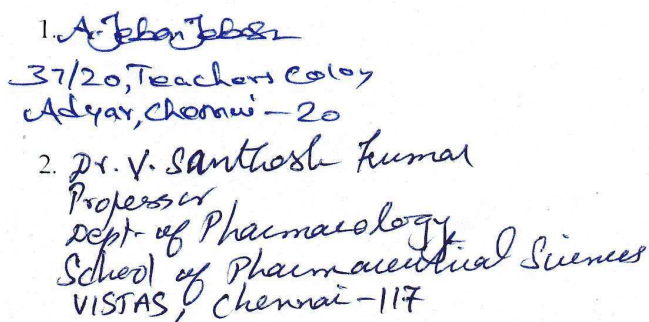 1. A. Jeban Jebosn
37/20, Teachers Coloy
Adyar, Chennai - 20
2. Dr. V. Santhosh Kumar
Professor
Dept. of Pharmacology
School of Pharmaceutical Sciences
VISTAS, Chennai - 117